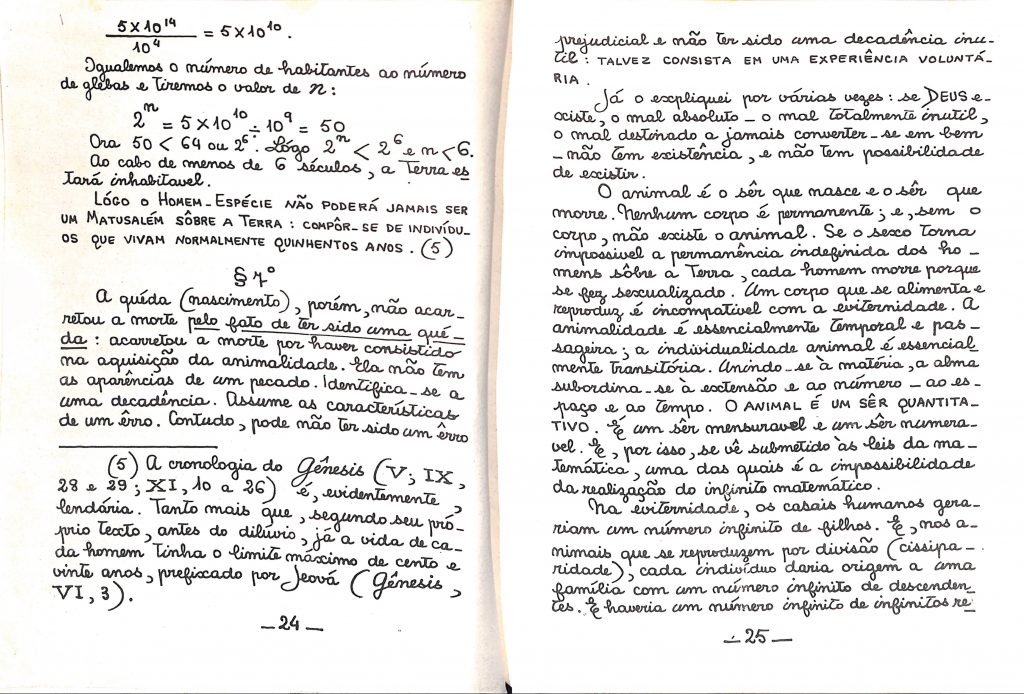 5 X 10¹⁴
――― = 5 X 10¹⁰.
10⁴
Igualemos o número de habitantes ao número
de glebas e tiremos o valor de n:
2ⁿ = 5 X 10¹⁰ ÷ 10⁹ = 50
Ora 50 < 64 ou 2⁶. Lógo 2ⁿ < 2⁶ e n < 6.
Ao cabo de menos de 6 séculos, a Terra es
tará inhabitavel.
LÓGO O HOMEM-ESPÉCIE NÃO PODERÁ JAMAIS SER
UM MATUSALÉM SÔBRE A TERRA: COMPÔR-SE DE INDIVÍDU-
OS QUE VIVAM NORMALMENTE QUINHENTOS ANOS. (5)
§ 7º
A quéda (nascimento), porém, não acar-
retou a morte pelo fato de ter sido uma qué-
da: acarretou a morte por haver consistido
na aquisição da animalidade. Ela não tem
as aparências de um pecado. Identifica-se a
uma decadência. Assume as características
de um êrro. Contudo, pode não ter sido um êrro
(5) A cronologia do Gênesis (V; IX,
28 e 29; XI, 10 a 26) é, evidentemente,
lendária. Tanto mais que, segundo seu pró-
prio texto, antes do dilúvio, já a vida de ca-
da homem tinha o limite máximo de cento e
vinte anos, prefixado por Jeová (Gênesis,
VI, 3).
-24-
prejudicial e não ter sido uma decadência inu-
til: TALVEZ CONSISTA EM UMA EXPERIÊNCIA VOLUNTÁ-
RIA.
Já o expliquei por várias vezes: se DEUS e-
xiste, o mal absoluto - o mal totalmente inutil,
o mal destinado a jamais converter-se em bem
- não tem existência, e não tem possibilidade
de existir.
O animal é o sêr que nasce e o sêr que
morre. Nenhum corpo é permanente; e, sem o
corpo, não existe o animal. Se o sexo torna
impossivel a permanência indefinida dos ho-
mens sôbre a Terra, cada homem morre porque
se fez sexualizado. Um corpo que se alimenta e
reproduz é incompativel com a eviternidade. A
animalidade é essencialmente temporal e pas-
sageira; a individualidade animal é essencial
mente transitória. Unindo-se à matéria, a alma
subordina-se à extensão e ao número - ao es-
paço e ao tempo. O ANIMAL É UM SÊR QUANTITA-
TIVO. É um sêr mensuravel e um sêr numera-
vel. E, por isso, se vê submetido às leis da ma-
temática, uma das quais é a impossibilidade
da realização do infinito matemático.
Na eviternidade, os casais humanos gera-
riam um número infinito de filhos. E, nos a-
nimais que se reproduzem por divisão (cissipa-
ridade), cada indivíduo daria origem a uma
família com um número infinito de descenden-
tes. E haveria um número infinito de infinitos re-
-25-